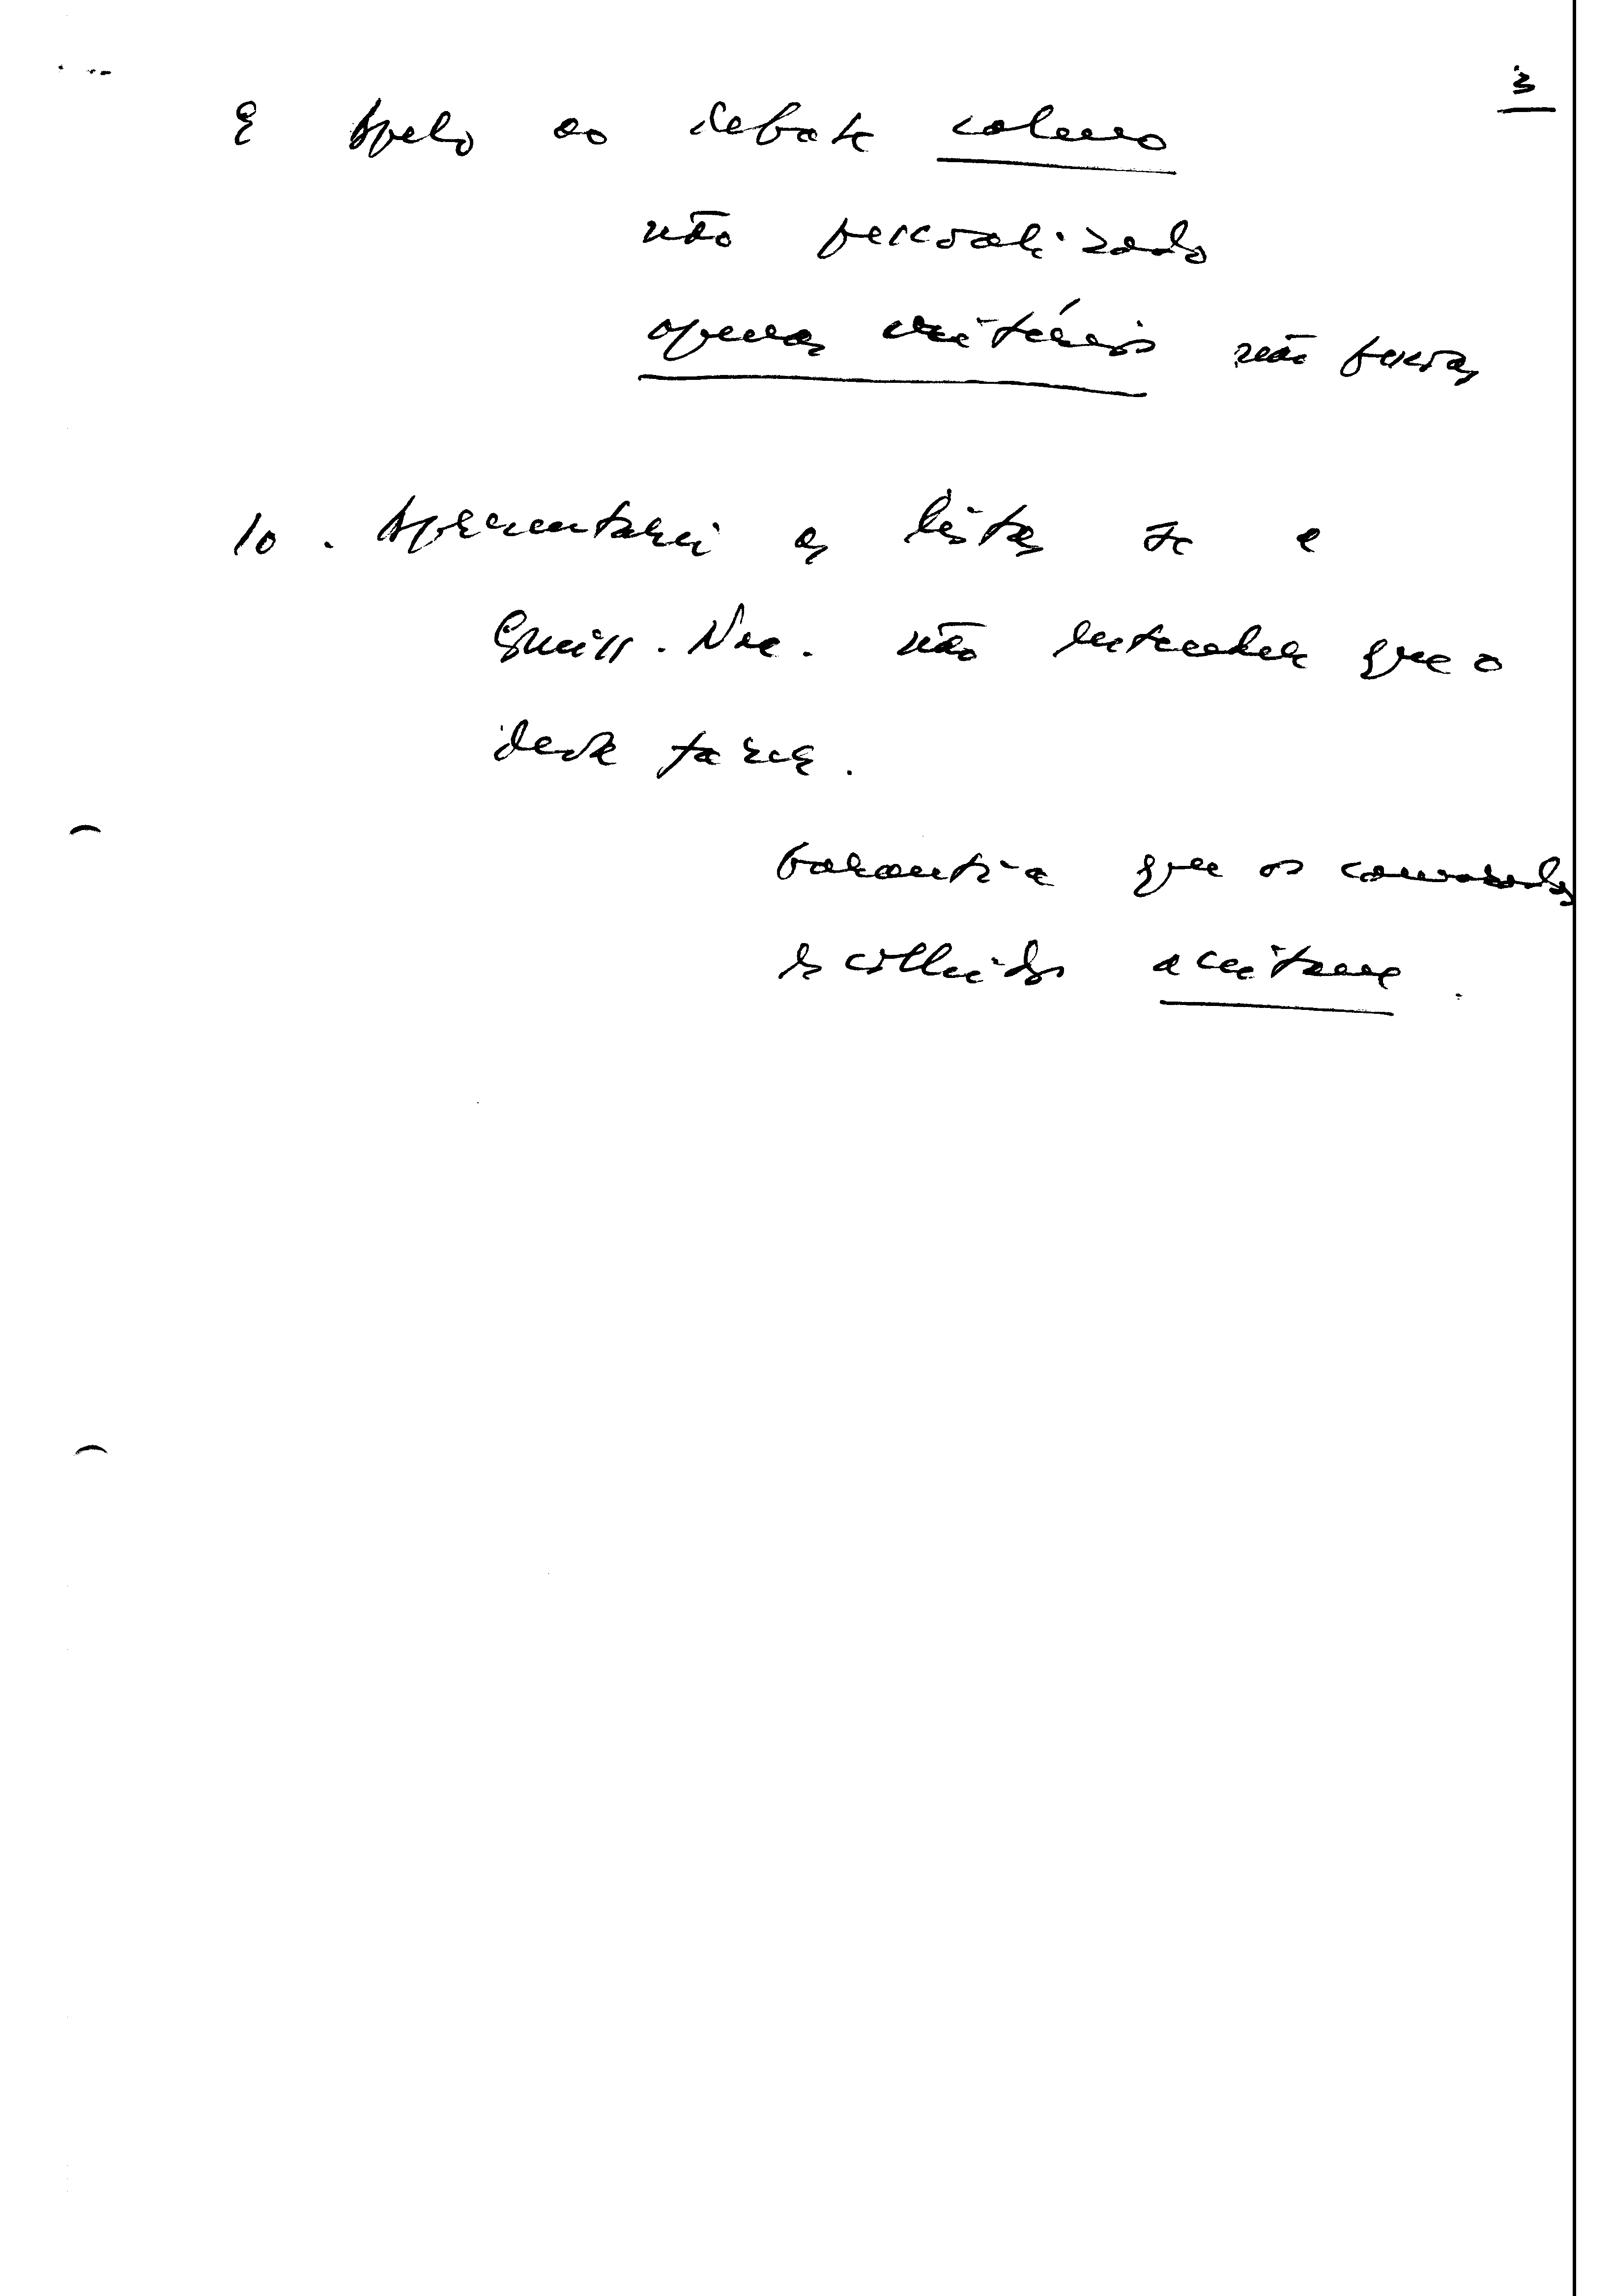 3
9 Apelo ao debate calmo
não personalizado
apenas critérios não pessoas
10. Apresentarei as listas se a
Comiss. Nac. não entender que o
deve fazer.
Garantia que os camaradas
escolhidos aceitam.